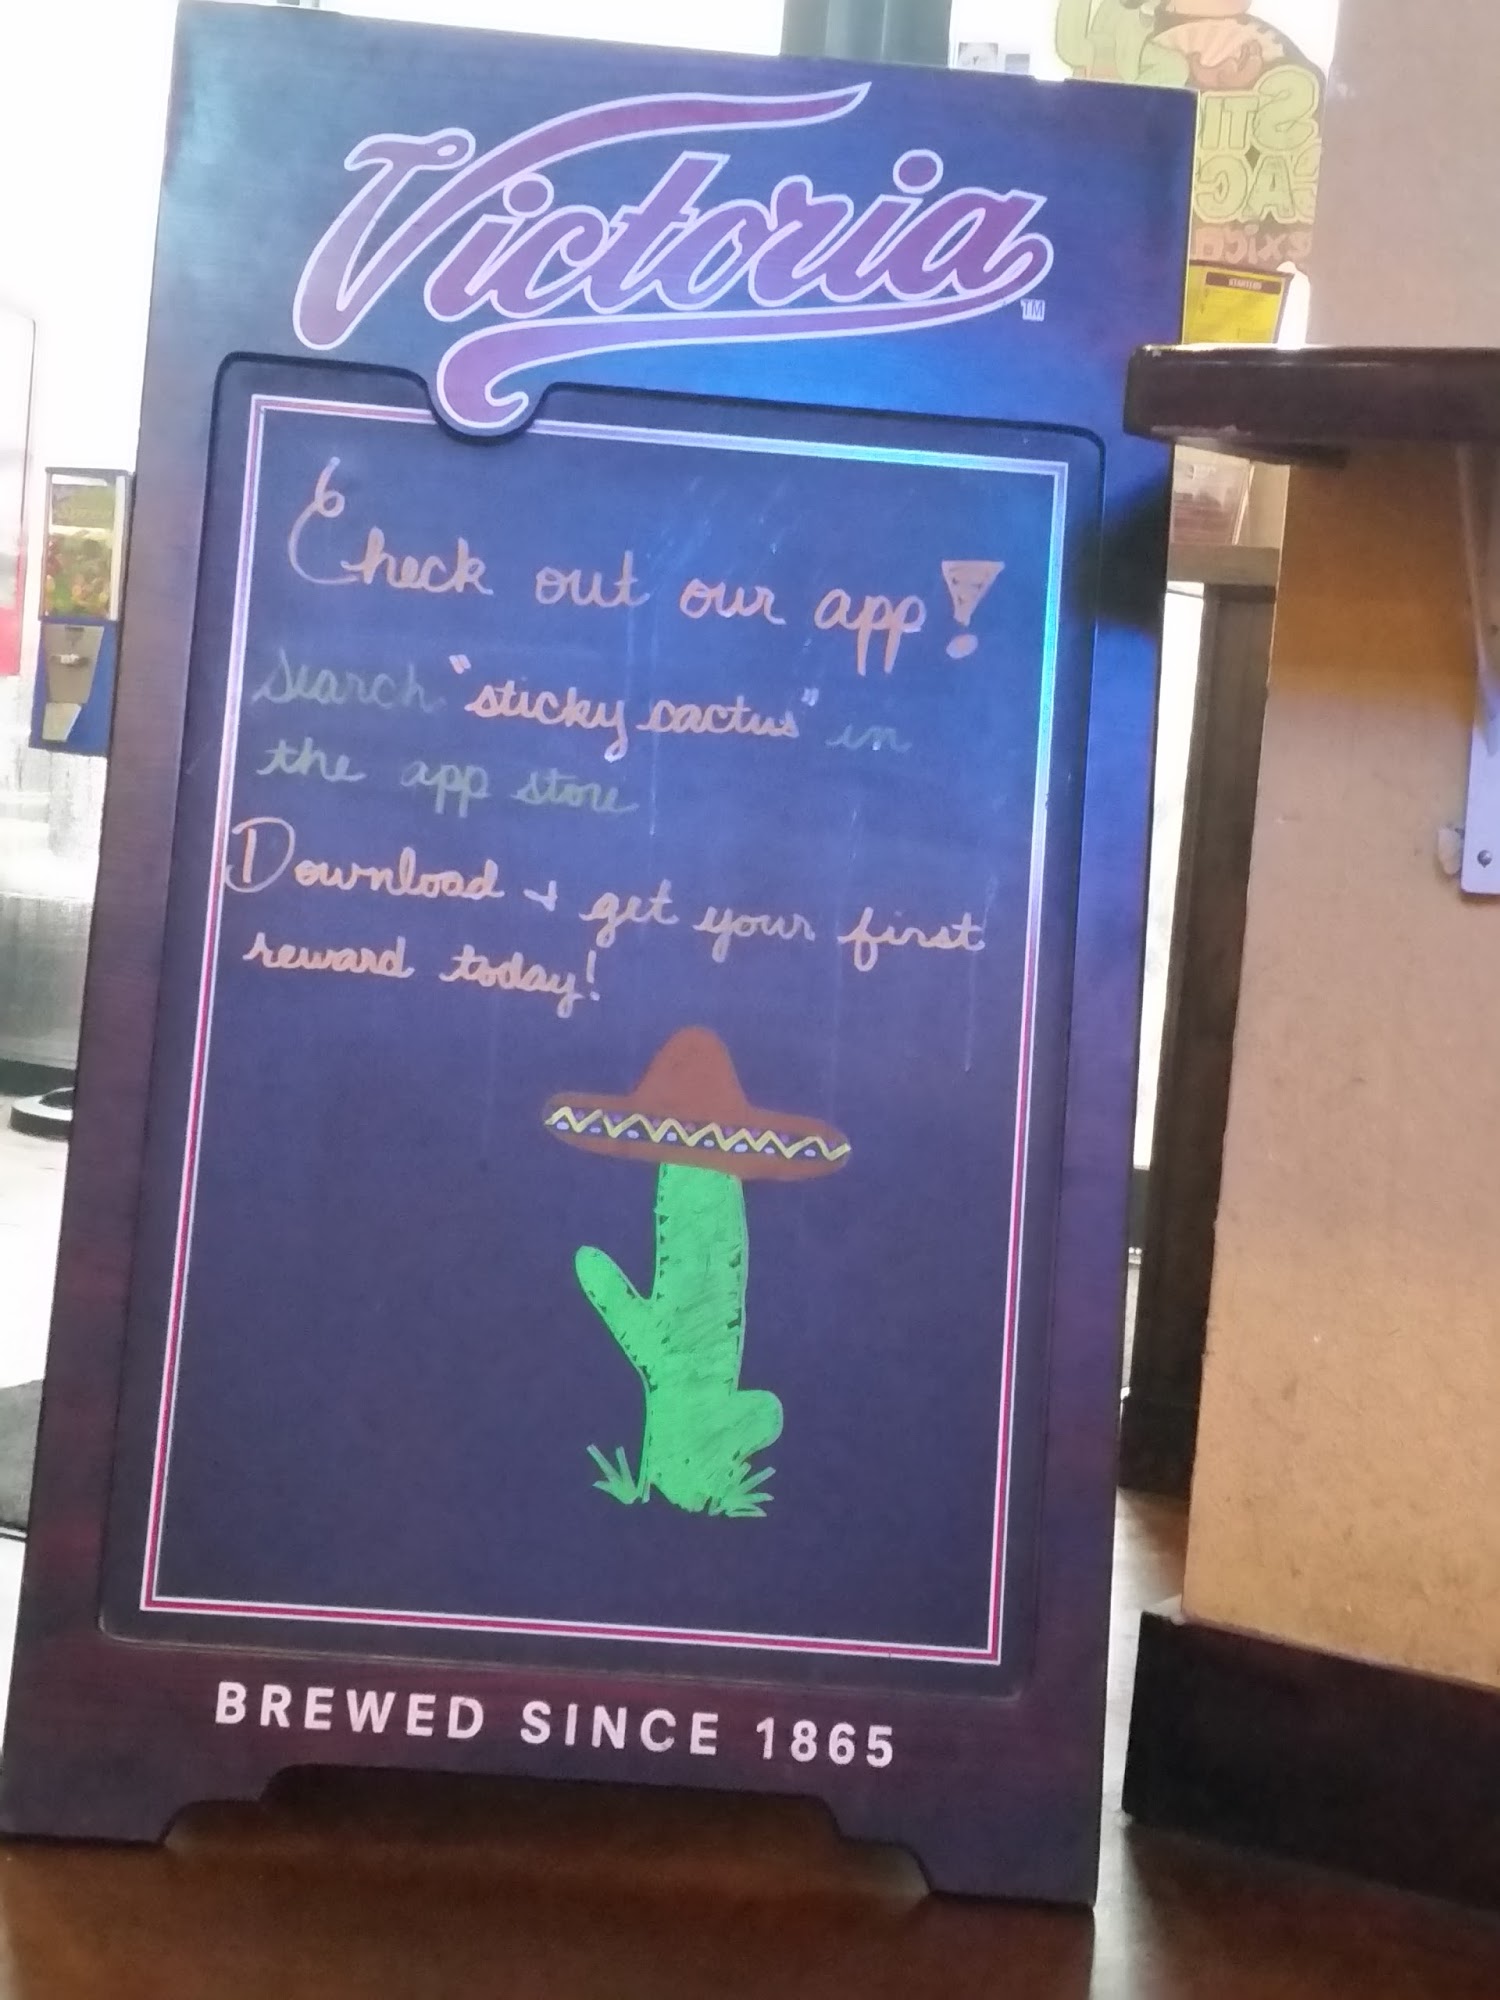 Victoria
TM
Check out our app!
Search "sticky cactus" in
the app store
Download + get your first
reward today!
BREWED SINCE 1865
STARTERS